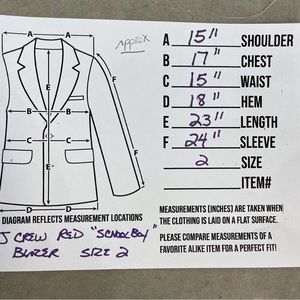 A A
Approx
E
F
B B
C C
D D
A 15" SHOULDER
B 17" CHEST
C 15" WAIST
D 18" HEM
E 23" LENGTH
F 24" SLEEVE
2 SIZE
ITEM#
DIAGRAM REFLECTS MEASUREMENT LOCATIONS
J CREW RED "SCHOOLBOY"
BLAZER SIZE 2
MEASUREMENTS (INCHES) ARE TAKEN WHEN
THE CLOTHING IS LAID ON A FLAT SURFACE.
PLEASE COMPARE MEASUREMENTS OF A
FAVORITE ALIKE ITEM FOR A PERFECT FIT!